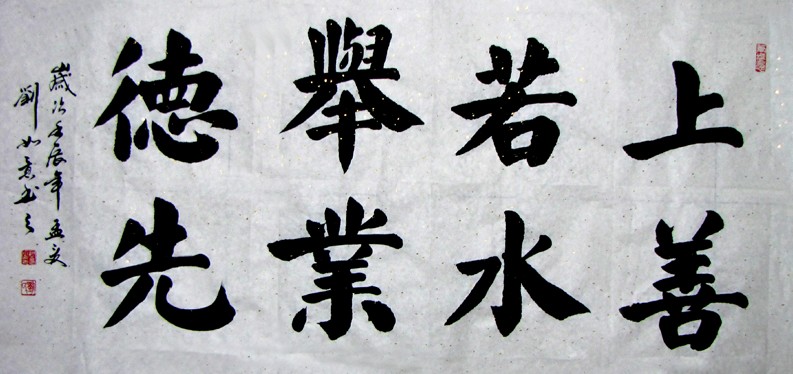 上善
若水
舉業
德先
歲次壬辰年孟夏
劉如意书